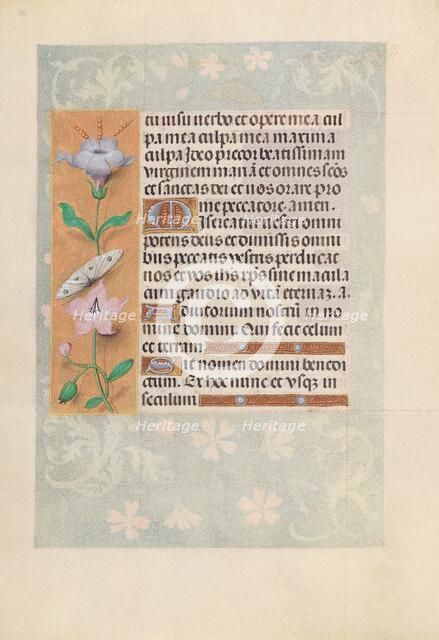 tu uisu uerbo et opere mea cul
pa mea culpa mea maxima
culpa Ideo precor beatissimam
virginem mariā et omnes scōs
et sanctas dei et uos orare pro
me peccatore. amen.
Misereatur uestri omni
potens deus et dimissis omni
bus peccatis vestris perducat
nos et vos ihs xp̄s sine macula
cum gaudio ad vitā eternaz. a.
Adiutorium nostrū in no
mine domini. Qui fecit celum
et terram
Sit nomen domini benedi
ctum. Ex hoc nunc et vsqz in
seculum
Heritage Heritage
Heritage Heritage
Heritage Heritage